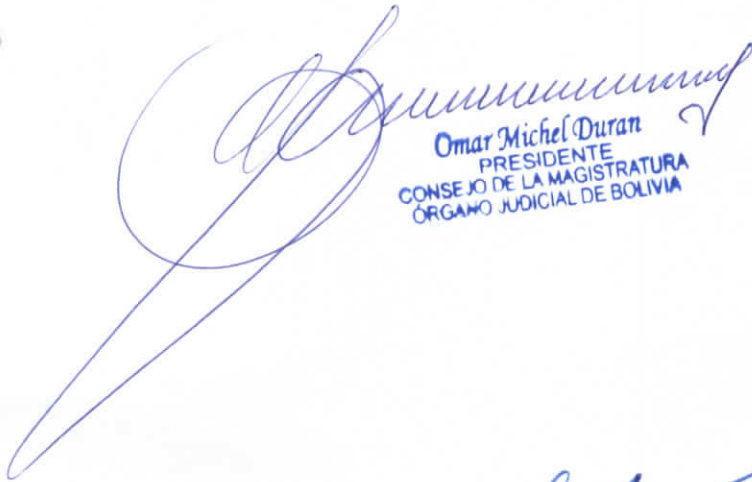 Omar Michel Duran
PRESIDENTE
CONSEJO DE LA MAGISTRATURA
ÓRGANO JUDICIAL DE BOLIVIA